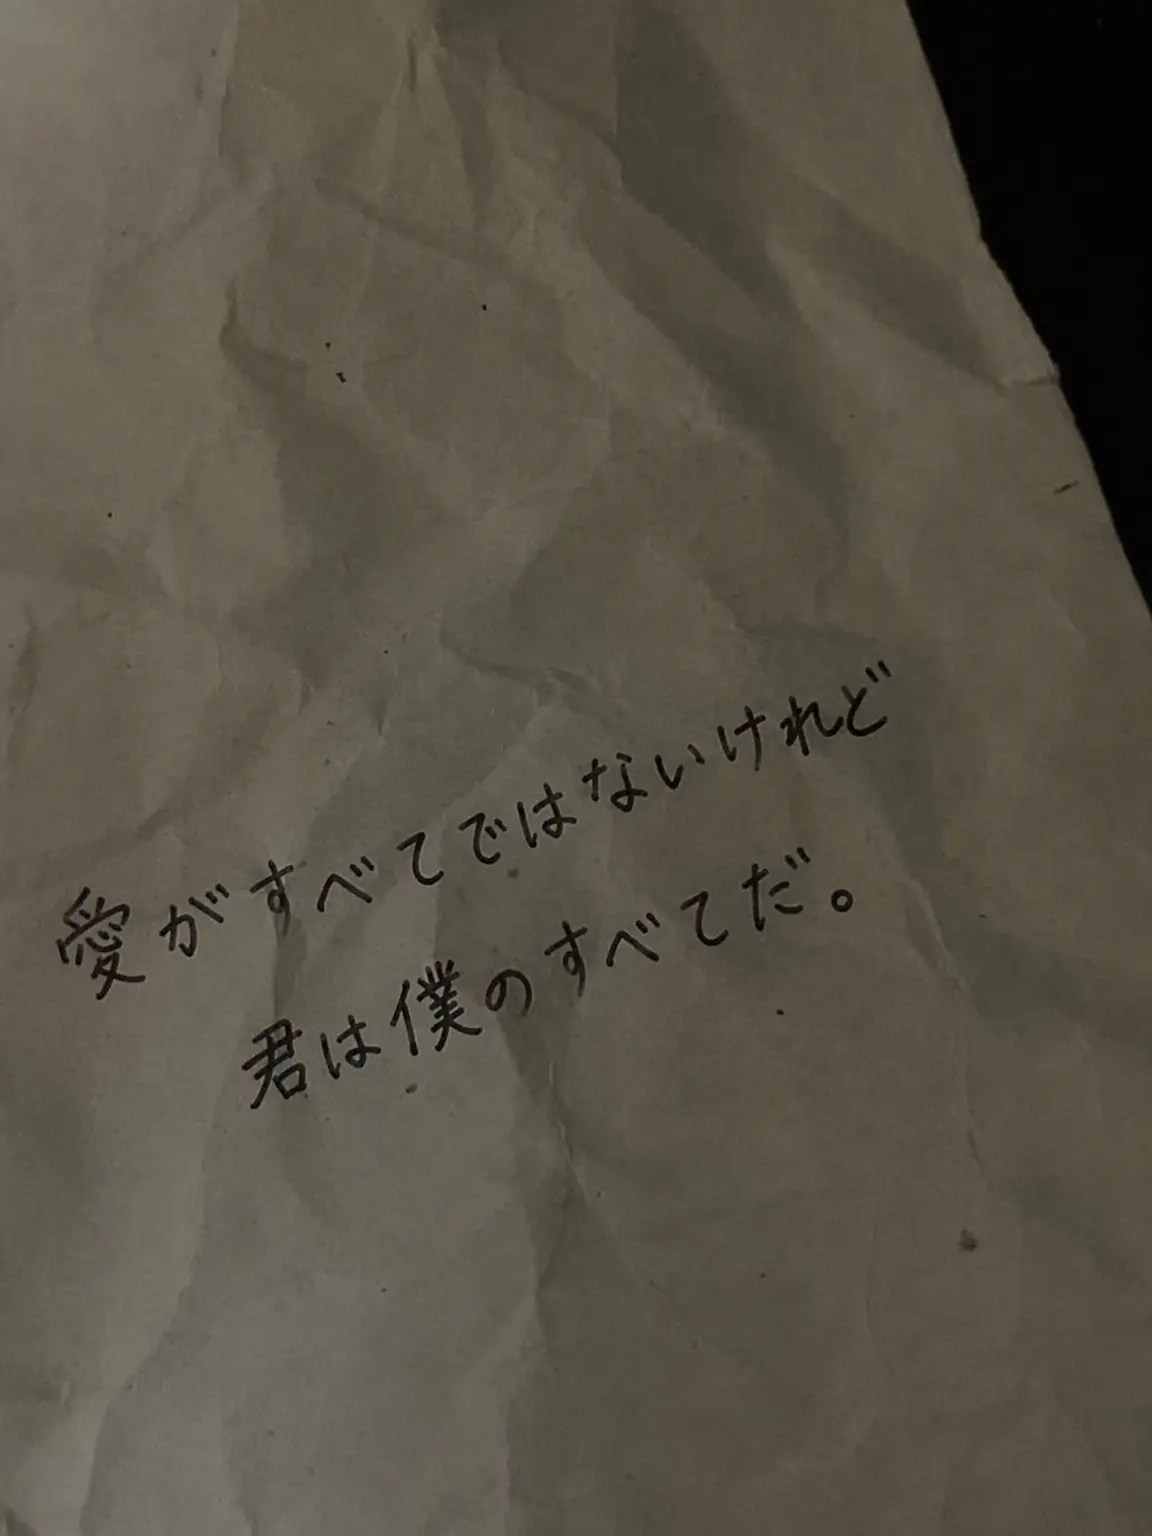 愛がすべてではないけれど
君は僕のすべてだ。